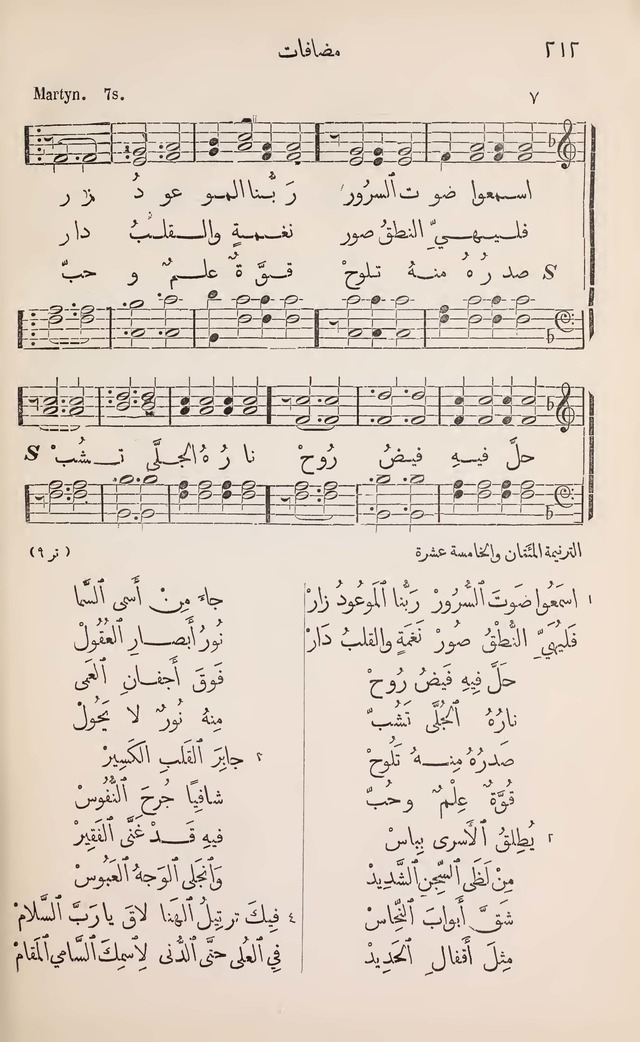 ٢١٢
مضافات
Martyn. 7s.
٧
اسمعوا ضوت السرور ربُّنا الموعودُ زار
فليهيِّ النطقُ صور نغمةٍ والقلبُ دار
S صدرُهُ منهُ تلوحْ قوَّةٌ علمٌ وحبّْ
حلَّ فيهِ فيضُ روحْ نارُهُ الجلَّى تشُبّْ S
الترنيمة المئتان والخامسة عشرة
(تر ٩)
١ اسمَعُوا صَوتَ السُّرُورْ رَبُّنا المَوعُودُ زارْ
فَليُهَيِّ النُّطْقُ صُورْ نَغمَةٍ والقلبُ دَارْ
حَلَّ فِيهِ فَيضُ رُوحْ
نارُهُ الجُلَّى تَشُبّْ
صَدرُهُ مِنهُ تَلُوحْ
قُوَّةٌ عِلْمٌ وحُبّْ
٢ يُطلِقُ الأَسرى بِباسْ
مِنْ لَظَى السِّجنِ الشَّدِيدْ
شَقَّ أَبوابَ النُّحاسْ
مِثلَ أَقفالِ الحَدِيدْ
جاءَ مِنْ أَسمَى السَّما
نُورُ أَبصارِ العُقُولْ
فَوقَ أَجفانِ العَمَى
مِنهُ نُورٌ لا يَحُولْ
٣ جابِرَ القَلبِ الكَسِيرْ
شافِيًا جُرحَ النُّفُوسْ
فيهِ قَدْ غَنَّى الفَقِيرْ
وَانجَلَى الوَجهُ العَبُوسْ
٤ فِيكَ ترتِيلُ الهَنا لاقَ يا رَبَّ السَّلامْ
في العُلى حتَّى الدُّنى لِاسمِكَ السَّامي المَقامْ